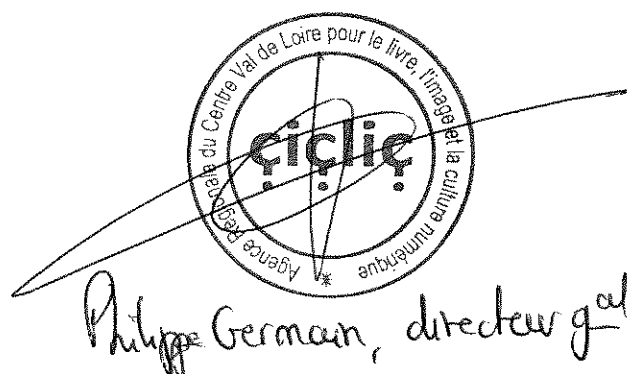 Agence Régionale du Centre Val de Loire pour le livre, l'image et la culture numérique *
çicliç
Philippe Germain, directeur gal